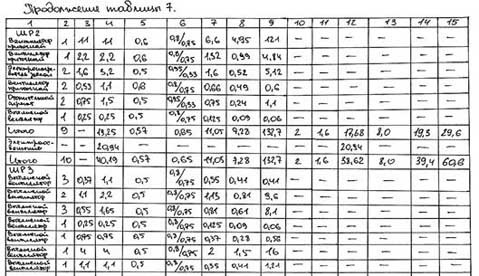 Продолжение таблицы 7.
1 2 3 4 5 6 7 8 9 10 11 12 13 14 15
ШР2
Вентилятор приточной 1 11 11 0,6 0,8/0,85 6,6 4,95 121 – – – – – –
Вентилятор крышной 1 2,2 2,2 0,6 0,8/0,75 1,32 0,99 4,84 – – – – – –
2 1,6 3,2 0,5 0,95/0,33 1,6 0,52 5,12 – – – – – –
Вентилятор приточной 2 0,55 1,1 0,6 0,8/0,75 0,66 0,49 0,6 – – – – – –
агрегат 2 0,75 1,5 0,5 0,95/0,33 0,75 0,24 1,1 – – – – – –
Вытяжной вентилятор 1 0,25 0,25 0,5 0,8/0,75 0,125 0,09 0,06 – – – – – –
Итого 9 – 19,25 0,57 0,85 11,05 7,28 132,7 2 1,6 17,68 8,0 19,3 29,6
Электроосвещение – – 20,94 – – – – – – – 20,94 – – –
Итого 10 – 40,19 0,57 0,65 11,05 7,28 132,7 2 1,6 38,62 8,0 39,4 60,6
ШР3
Вытяжной вентилятор 3 0,37 1,1 0,5 0,8/0,75 0,55 0,41 0,41 – – – – – –
Вытяжной вентилятор 2 1,1 2,2 0,5 0,8/0,75 1,13 0,81 9,6 – – – – – –
Вытяжной вентилятор 3 0,55 1,65 0,5 0,8/0,75 0,81 0,61 8,1 – – – – – –
Вытяжной вентилятор 1 0,25 0,25 0,5 0,8/0,75 0,125 0,09 0,06 – – – – – –
Вытяжной вентилятор 1 0,75 0,75 0,5 0,8/0,75 0,37 0,28 0,56 – – – – – –
Вытяжной вентилятор 1 4 4 0,5 0,8/0,75 2 1,5 16 – – – – – –
Вытяжной вентилятор 1 1,1 1,1 0,5 0,8/0,75 0,55 0,41 1,21 – – – – – –